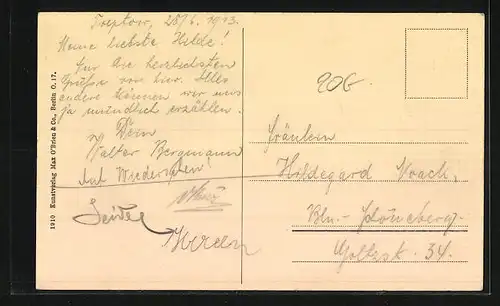 Treptow, 28/6. 1913.
Meine liebste Hilde!
Für die herzlichsten
Grüße von hier. Alles
andere können wir uns
ja mündlich erzählen.
Dein
Walter Bergmann
Auf Wiedersehen!
1910 Kunstverlag Max O'Brien & Co., Berlin O. 17.
20G.
Fräulein
Hildegard
Bln.-Schöneberg
Goltzstr. 34.